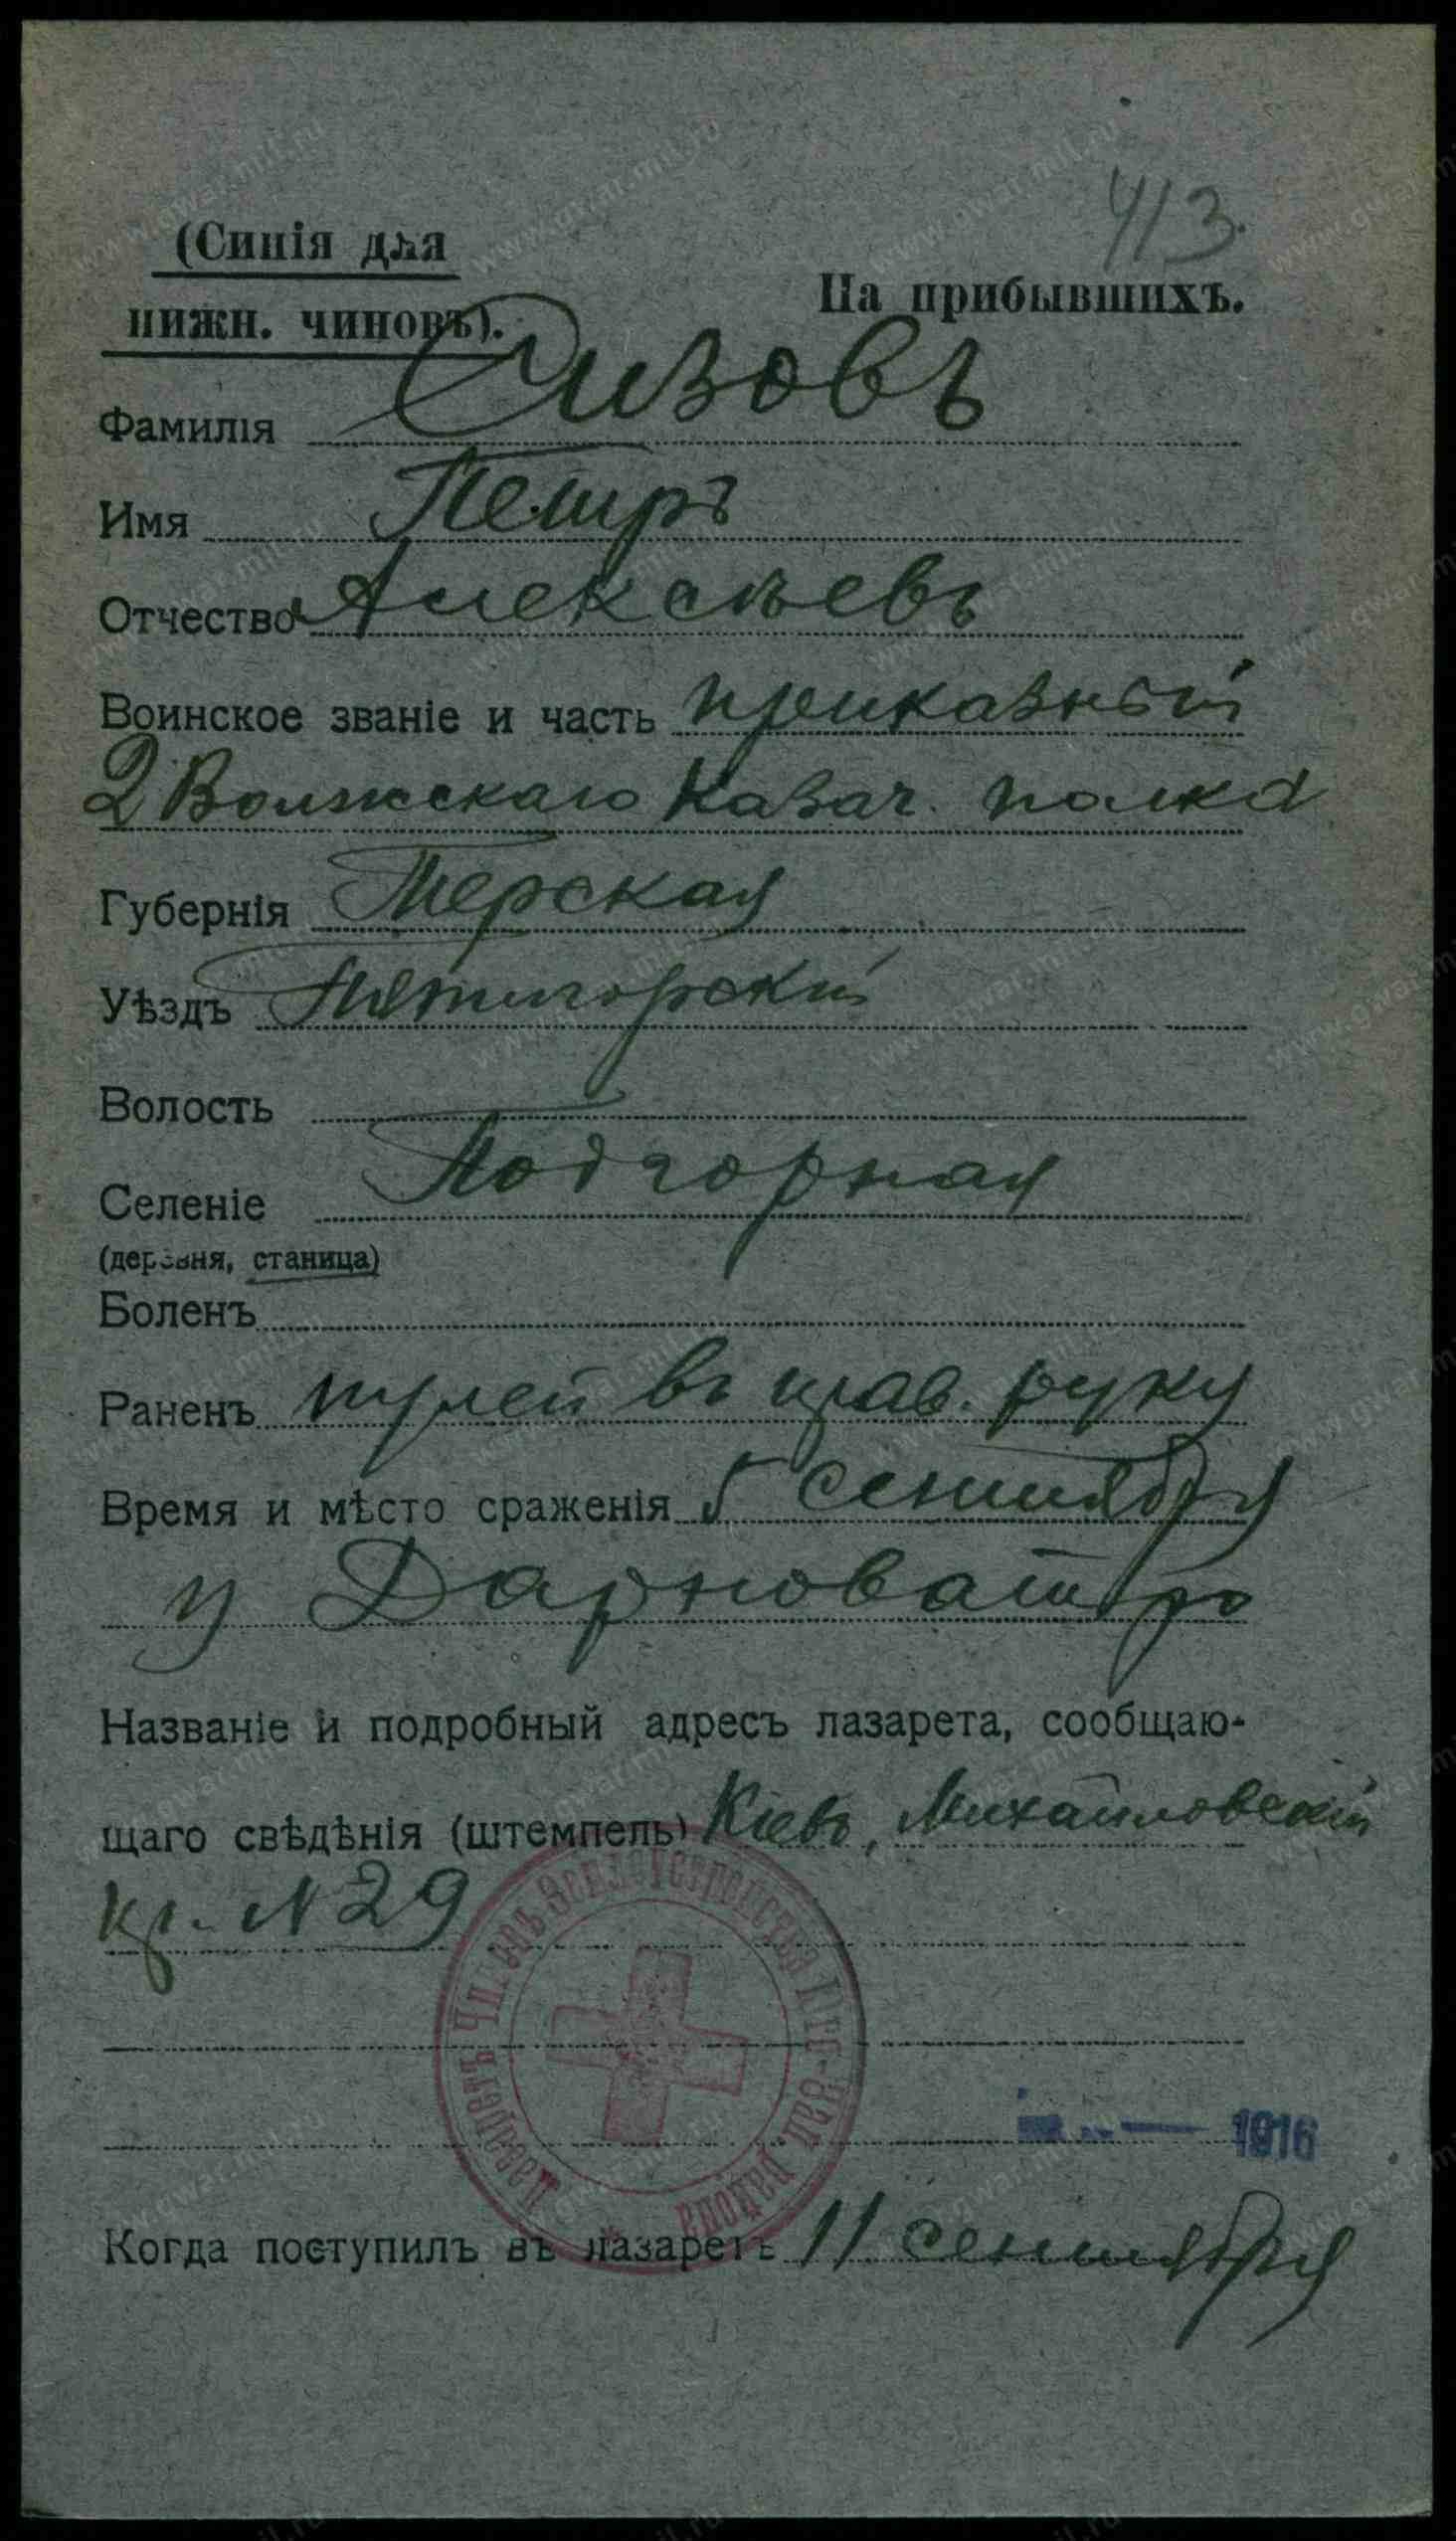 413.
(Синія для
нижн. чиновъ).
На прибывшихъ.
Фамилія Сизовъ
Имя Петръ
Отчество Алексѣевъ
Воинское званіе и часть приказный
2 Волжскаго Казач. полка
Губернія Терская
Уѣздъ Пятигорскій
Волость
Селеніе Подгорная
(деревня, станица)
Боленъ
Раненъ пулей въ прав. руку
Время и мѣсто сраженія 5 сентября
у Дарноватро
Названіе и подробный адресъ лазарета, сообщаю-
щаго свѣдѣнія (штемпель) Кіевъ, Михайловскій
№ 29
Лазаретъ Чиновъ Юго-Зап. района
1916
Когда поступилъ въ лазаретъ 11 сентября